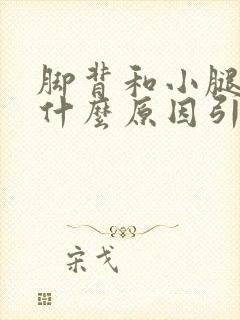 脚背和小腿
什麼原因引
宋戈